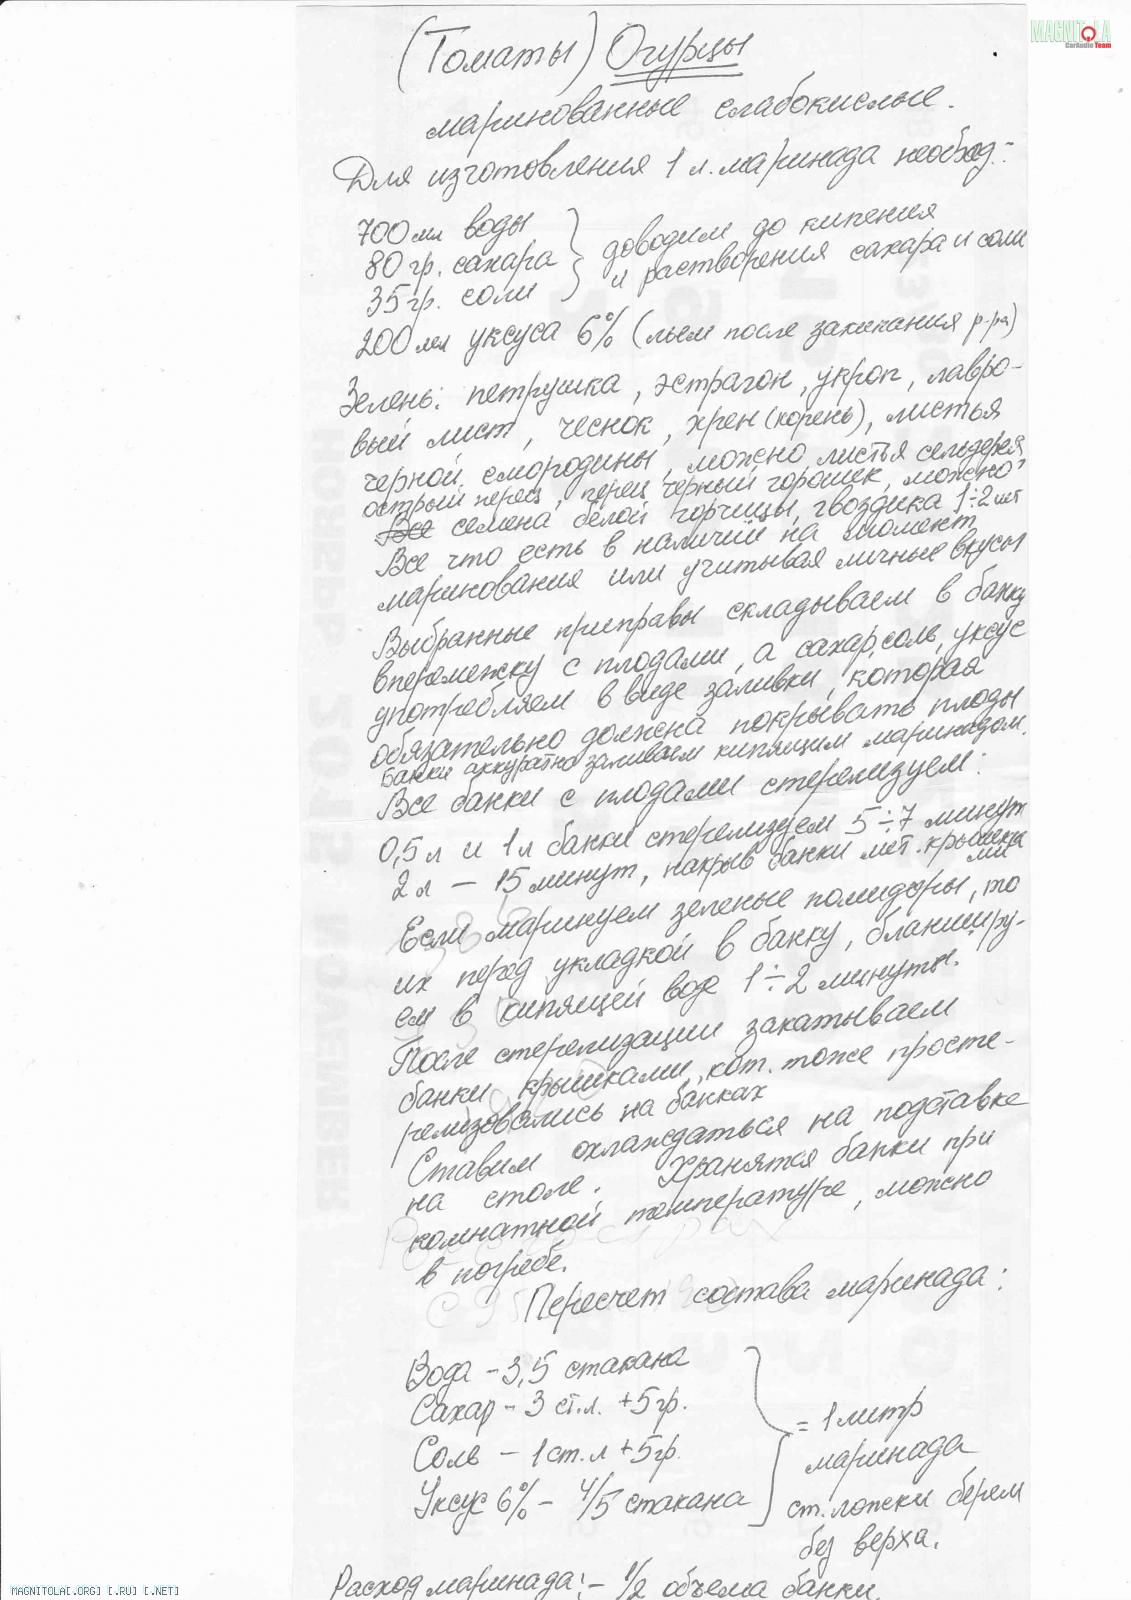 MAGNITOLA
CarAudio Team
(Томаты) Огурцы
маринованные слабокислые.
Для изготовления 1 л. маринада необход.:
700 мл воды
80 гр. сахара
35 гр. соли
доводим до кипения
и растворения сахара и соли
200 мл уксуса 6% (льем после закипания р-ра)
Зелень: петрушка, эстрагон, укроп, лавро-
вый лист, чеснок, хрен (корень), листья
черной смородины, можно листья сельдерея
острый перец, перец черный горошек, можно
Все семена белой горчицы, гвоздика 1÷2 шт
Все что есть в наличии на момент
маринования или учитывая личные вкусы
Выбранные приправы складываем в банку
вперемежку с плодами, а сахар, соль, уксус
употребляем в виде заливки, которая
обязательно должна покрывать плоды
Банки аккуратно заливаем кипящим маринадом.
Все банки с плодами стерелизуем:
0,5 л и 1 л банки стерелизуем 5÷7 минут
2 л – 15 минут, накрыв банки мет. крышка
ми
Если маринуем зеленые помидоры, то
их перед укладкой в банку, бланширу-
ем в кипящей воде 1÷2 минуты.
После стерелизации закатываем
банки крышками, кот. тоже просте-
релизовались на банках
Ставим охлаждаться на подставке
на столе. Хранятся банки при
комнатной температуре, можно
в погребе.
Пересчет состава маринада:
Вода – 3,5 стакана
Сахар – 3 ст.л. +5 гр.
Соль – 1 ст.л +5 гр.
Уксус 6% – 4/5 стакана
= 1 литр
маринада
ст. ложки берем
без верха.
Расход маринада: – 1/2 объема банки.
MAGNITOLA[.ORG] [.RU] [.NET]